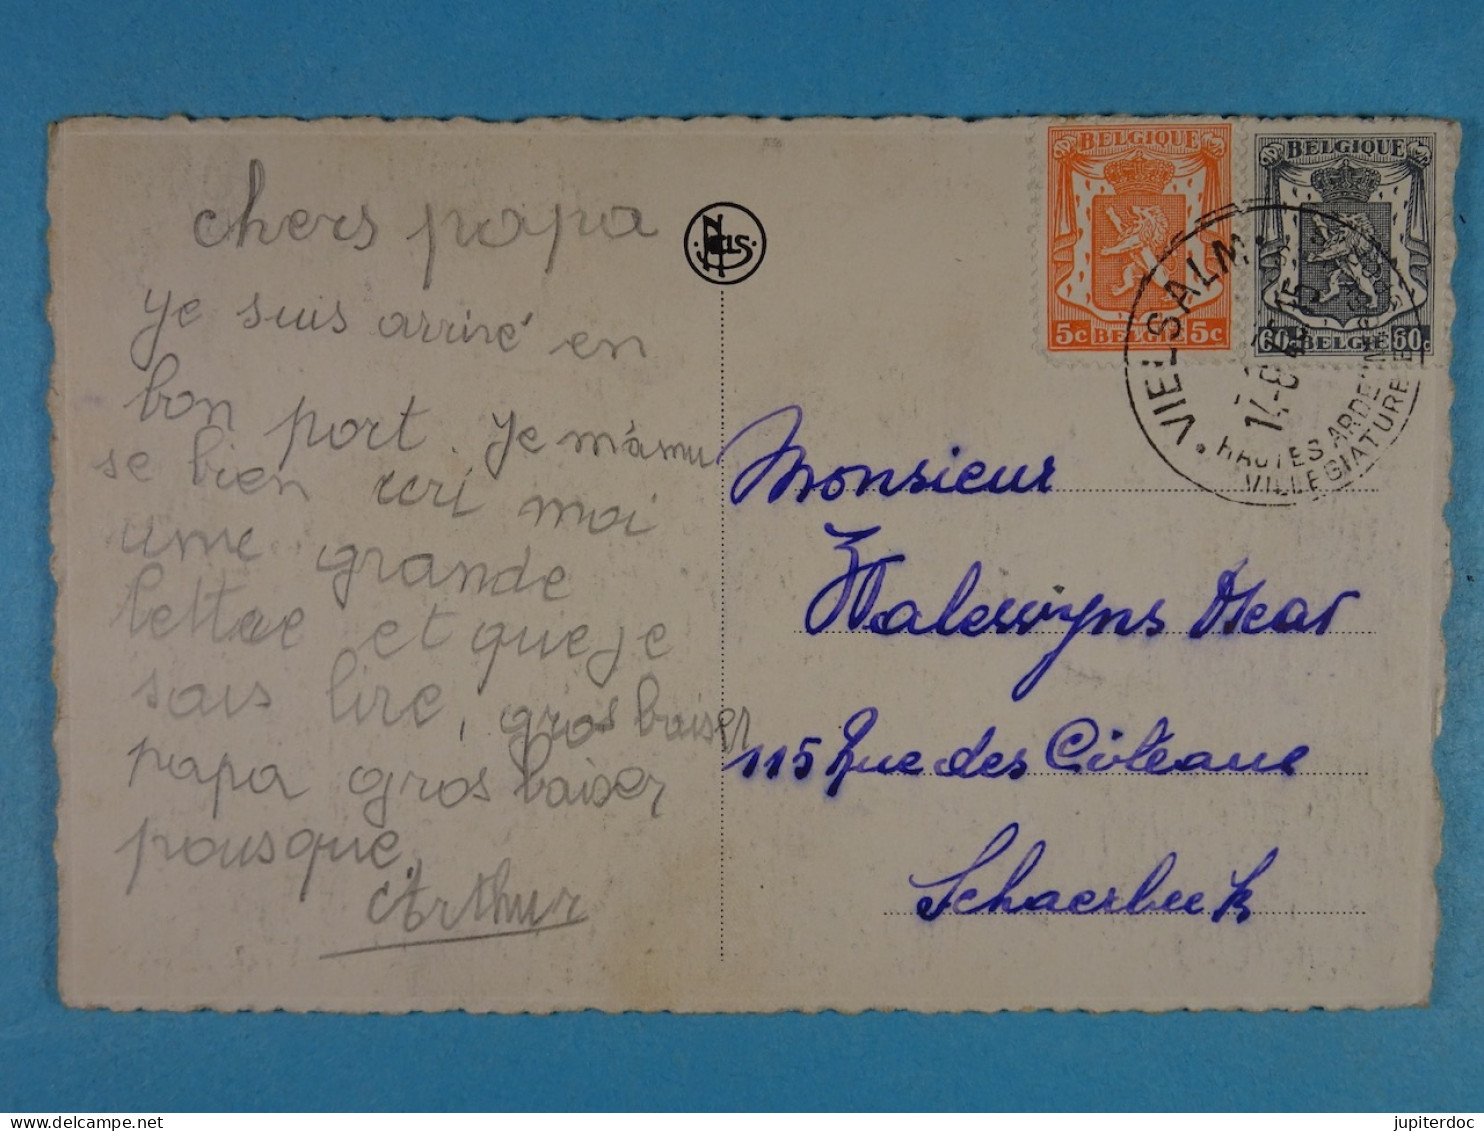 chers papa
je suis arrivé en
bon port. je m'amu
se bien écri moi
une grande
lettre et que je
sais lire, gros baiser
papa gros baiser
pousque.
Arthur
NELS
BELGIQUE
5c BELGIË 5c
BELGIQUE
60c BELGIË 60c
VIELSALM
HAUTES ARDENNES
VILLEGIATURE
Monsieur
Walewyns Oscar
115 Rue des Côteaux
Schaerbeek
jupiterdoc